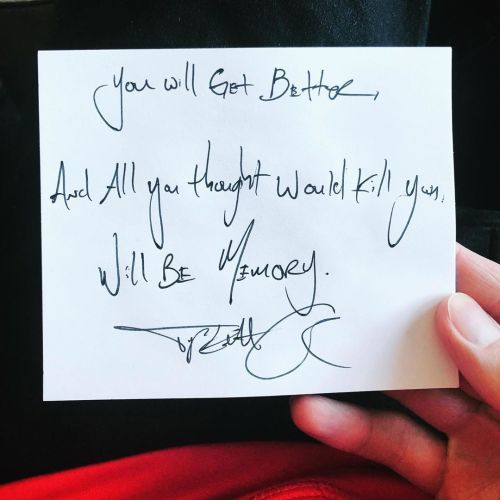 You will Get Better,
And All you thought Would Kill you,
Will BE MEMORY.